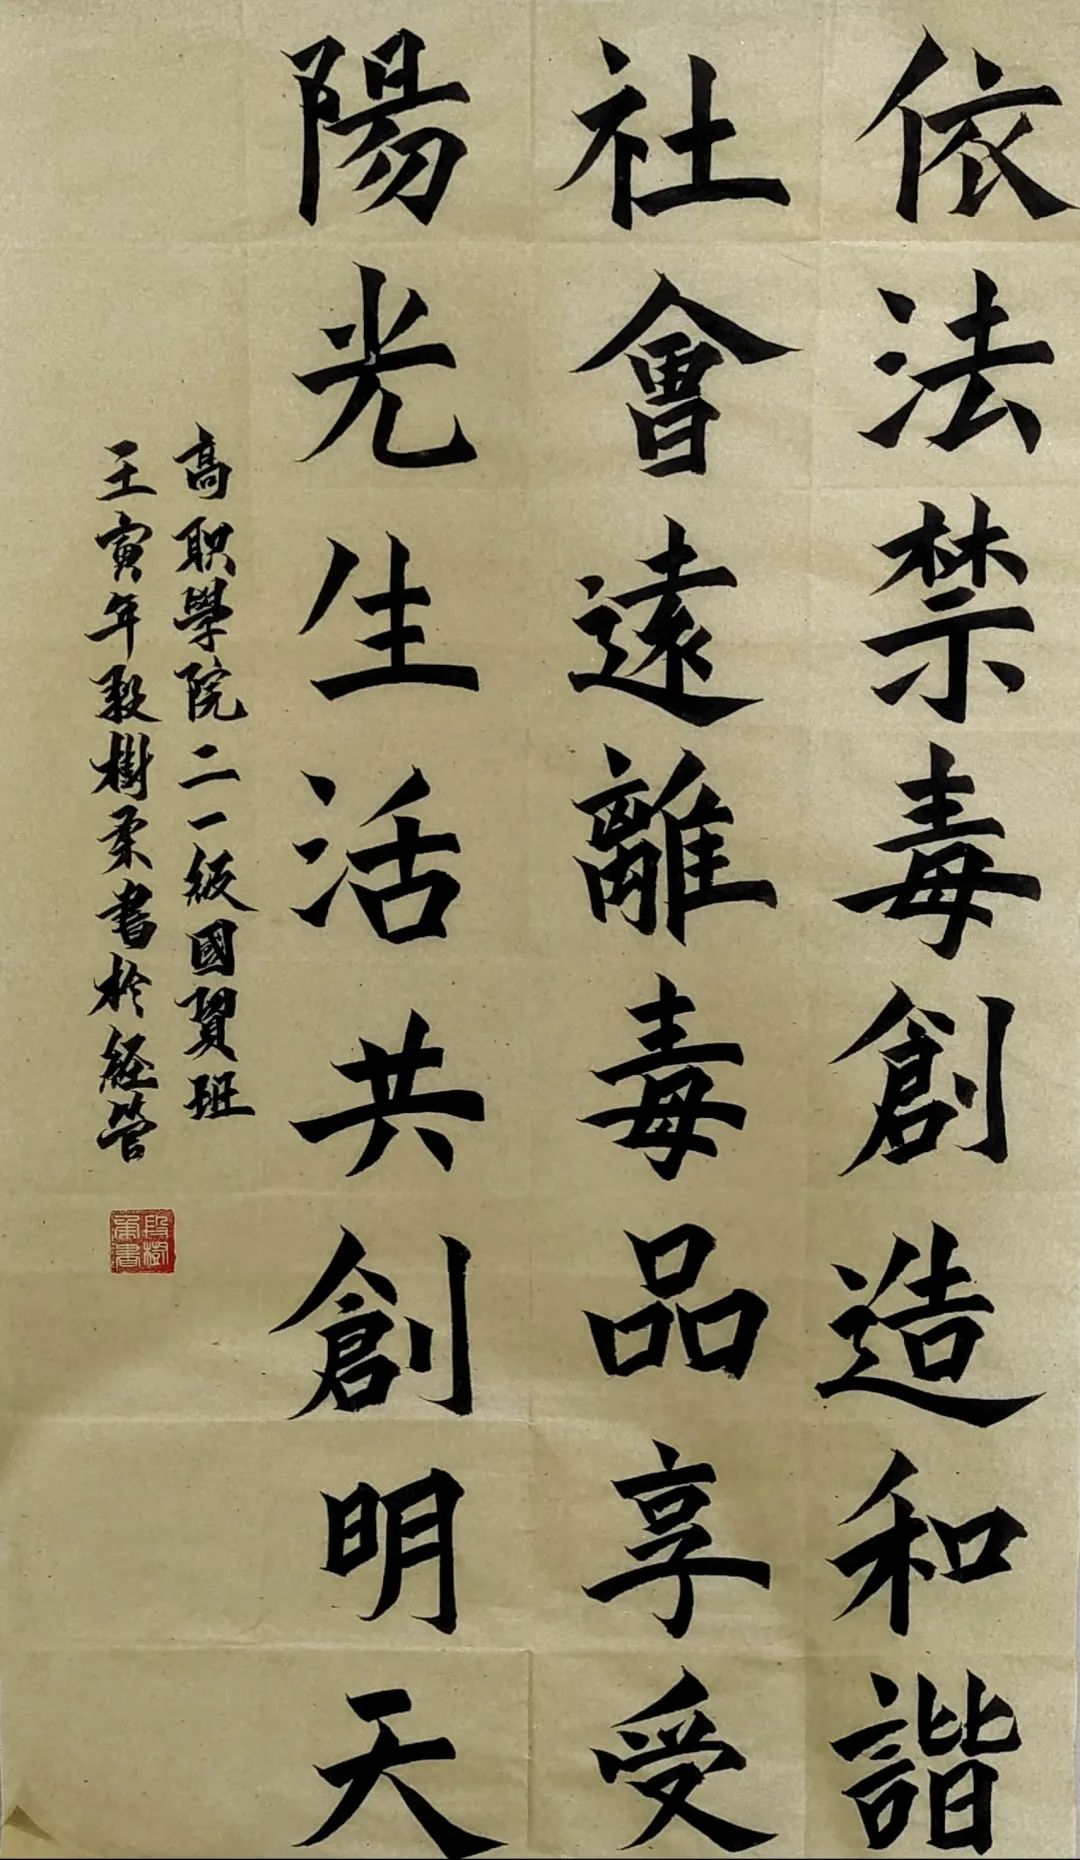 依法禁毒創造和諧
社會遠離毒品享受
陽光生活共創明天
高职學院二一級國貿班
壬寅年段樹柔書於経管